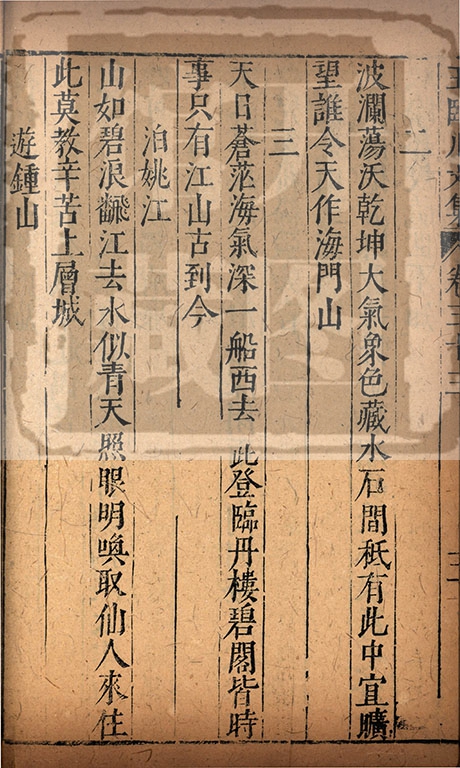 王臨川文集 卷三十三 三
二
波瀾蕩沃乾坤大氣象色藏水石間秪有此中宜曠
望誰令天作海門山
三
天日蒼茫海氣深一船西去此登臨丹樓碧閣皆時
事只有江山古到今
泊姚江
山如碧浪飜江去水似青天照眼明喚取仙人來住
此莫教辛苦上層城
遊鍾山